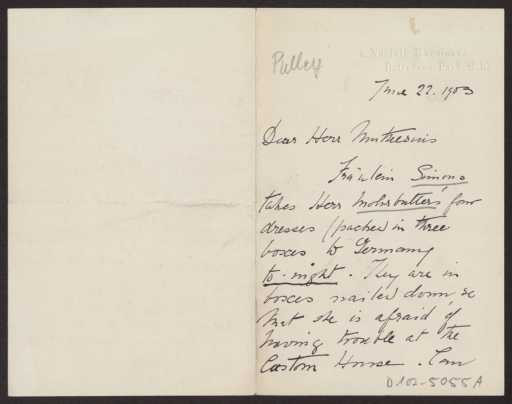 Pulley
June 22. 1903
Dear Herr Muthesius
Fräulein Simons
takes Herr Mohrbutter's four
dresses (packed in three
boxes to Germany
to-night. They are in
boxes nailed down, so
that she is afraid of
having trouble at the
Custom House. Can
D102-5055A